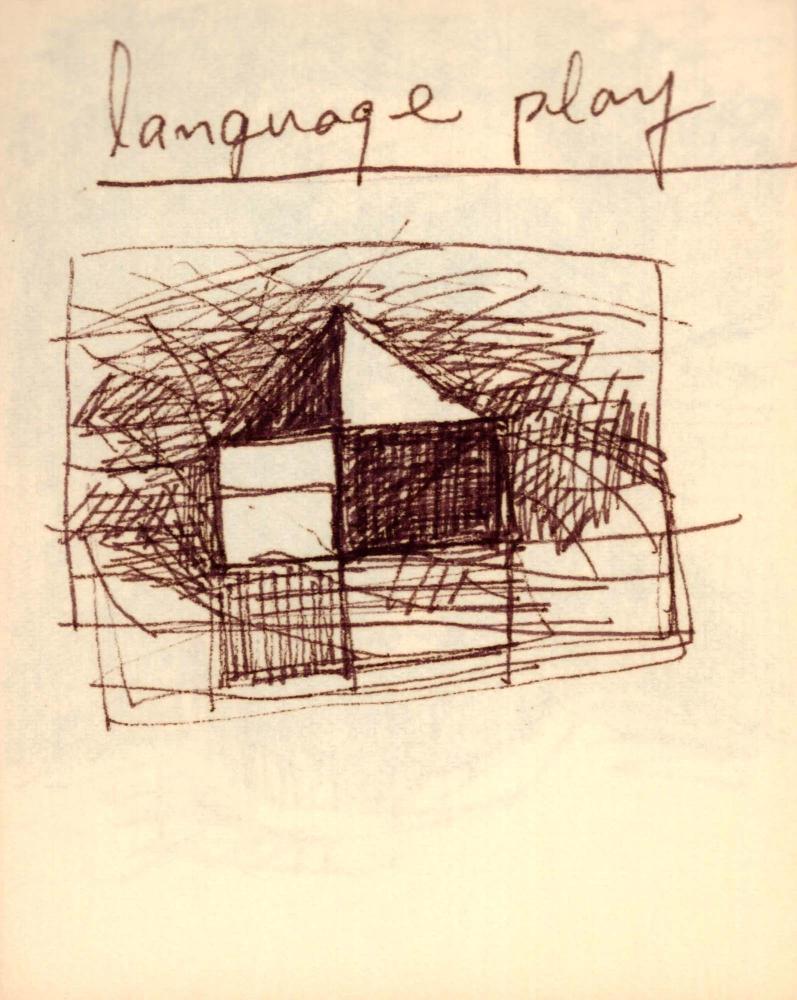 language play